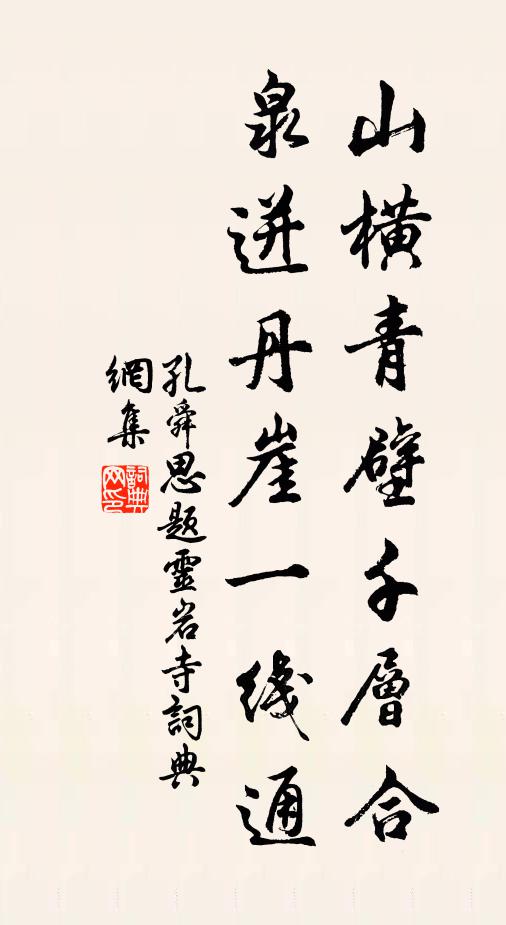 山橫青壁千層合
泉迸丹崖一线通
孔舜思题靈岩寺詞典
網集
詞典網印